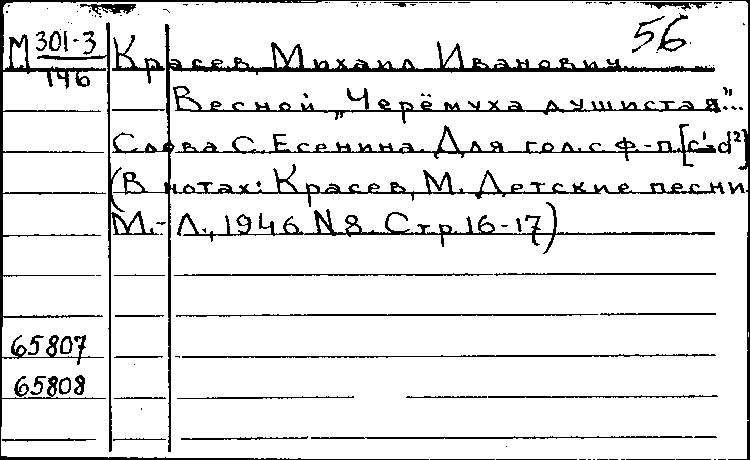 56
М 301-3/146 Красев, Михаил Иванович
Весной „Черёмуха душистая"...
Слова С. Есенина. Для гол. с ф-п. [c¹-d²]
(В нотах: Красев, М. Детские песни.
М.-Л., 1946. N 8. Стр. 16-17)
65807
65808